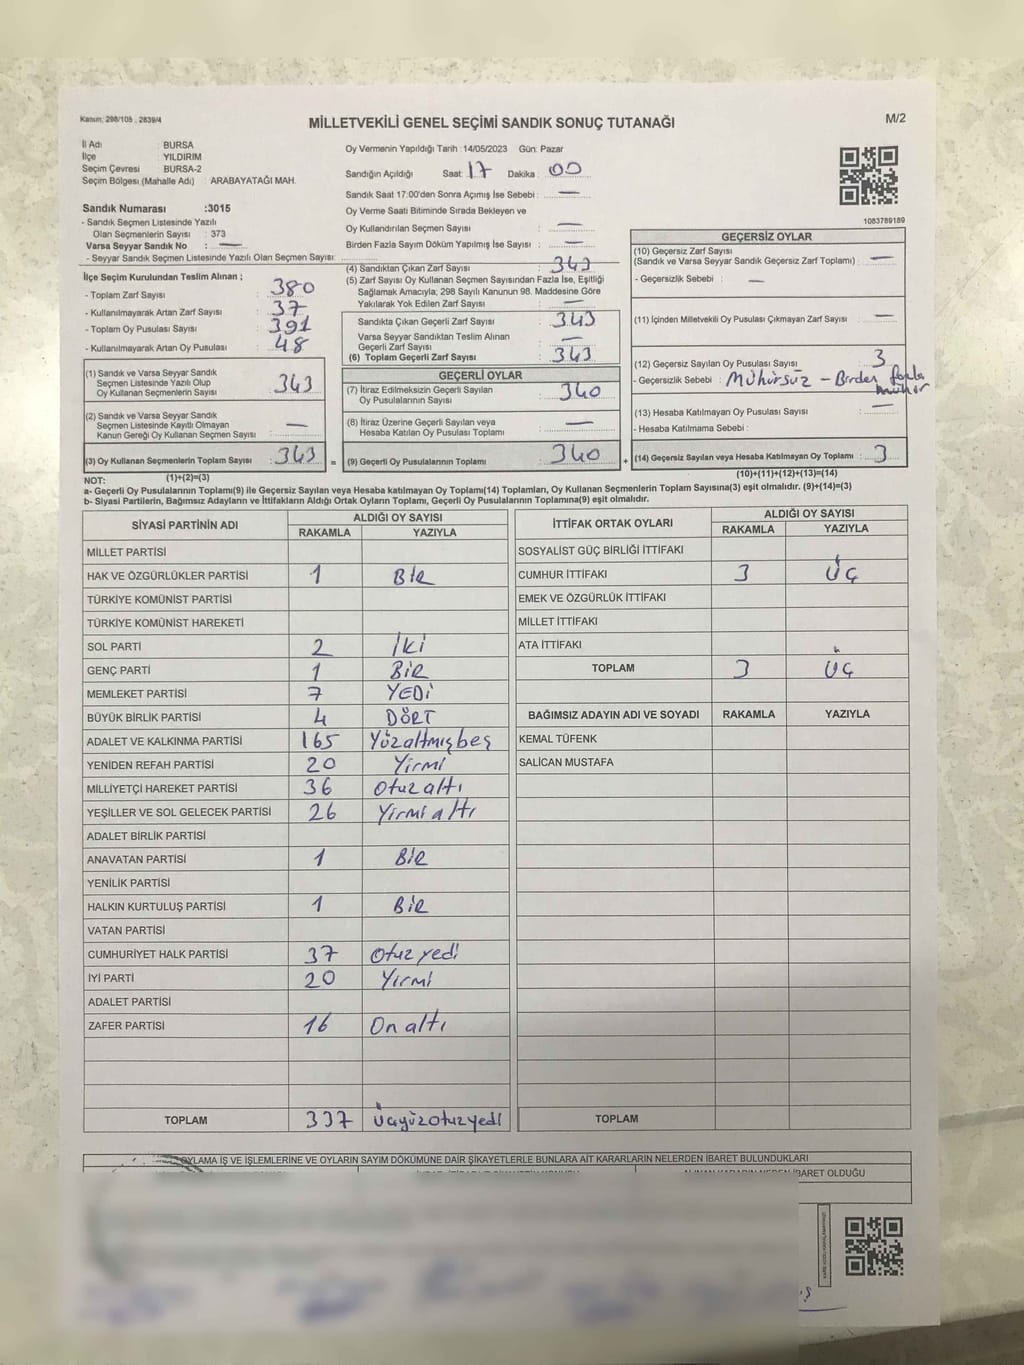 Kanun: 298/105 , 2839/4
MİLLETVEKİLİ GENEL SEÇİMİ SANDIK SONUÇ TUTANAĞI
M/2
İl Adı : BURSA
İlçe : YILDIRIM
Seçim Çevresi : BURSA-2
Seçim Bölgesi (Mahalle Adı) : ARABAYATAĞI MAH.
Sandık Numarası :3015
- Sandık Seçmen Listesinde Yazılı
Olan Seçmenlerin Sayısı : 373
Varsa Seyyar Sandık No : —
- Seyyar Sandık Seçmen Listesinde Yazılı Olan Seçmen Sayısı:
Oy Vermenin Yapıldığı Tarih :14/05/2023 Gün: Pazar
Sandığın Açıldığı Saat : 17 Dakika : 00
Sandık Saat 17:00'den Sonra Açımış İse Sebebi : —
Oy Verme Saati Bitiminde Sırada Bekleyen ve
Oy Kullandırılan Seçmen Sayısı : —
Birden Fazla Sayım Döküm Yapılmış İse Sayısı : —
1083789189
İlçe Seçim Kurulundan Teslim Alınan ;
- Toplam Zarf Sayısı : 380
- Kullanılmayarak Artan Zarf Sayısı : 37
- Toplam Oy Pusulası Sayısı : 391
- Kullanılmayarak Artan Oy Pusulası : 48
(1) Sandık ve Varsa Seyyar Sandık
Seçmen Listesinde Yazılı Olup
Oy Kullanan Seçmenlerin Sayısı : 343
(2) Sandık ve Varsa Seyyar Sandık
Seçmen Listesinde Kayıtlı Olmayan
Kanun Gereği Oy Kullanan Seçmen Sayısı : —
(3) Oy Kullanan Seçmenlerin Toplam Sayısı : 343
(1)+(2)=(3)
(4) Sandıktan Çıkan Zarf Sayısı : 343
(5) Zarf Sayısı Oy Kullanan Seçmen Sayısından Fazla İse, Eşitliği
Sağlamak Amacıyla, 298 Sayılı Kanunun 98. Maddesine Göre
Yakılarak Yok Edilen Zarf Sayısı : —
Sandıkta Çıkan Geçerli Zarf Sayısı : 343
Varsa Seyyar Sandıktan Teslim Alınan
Geçerli Zarf Sayısı : —
(6) Toplam Geçerli Zarf Sayısı : 343
GEÇERLİ OYLAR
(7) İtiraz Edilmeksizin Geçerli Sayılan
Oy Pusulalarının Sayısı : 340
(8) İtiraz Üzerine Geçerli Sayılan veya
Hesaba Katılan Oy Pusulası Toplamı : —
= (9) Geçerli Oy Pusulalarının Toplamı : 340 +
GEÇERSİZ OYLAR
(10) Geçersiz Zarf Sayısı
(Sandık ve Varsa Seyyar Sandık Geçersiz Zarf Toplamı) : —
- Geçersizlik Sebebi : —
(11) İçinden Milletvekili Oy Pusulası Çıkmayan Zarf Sayısı : —
(12) Geçersiz Sayılan Oy Pusulası Sayısı : 3
- Geçersizlik Sebebi : Mühürsüz – Birden fazla
mühür
(13) Hesaba Katılmayan Oy Pusulası Sayısı : —
- Hesaba Katılmama Sebebi :
(14) Geçersiz Sayılan veya Hesaba Katılmayan Oy Toplamı : 3
(10)+(11)+(12)+(13)=(14)
NOT:
a- Geçerli Oy Pusulalarının Toplamı(9) ile Geçersiz Sayılan veya Hesaba katılmayan Oy Toplamı(14) Toplamları, Oy Kullanan Seçmenlerin Toplam Sayısına(3) eşit olmalıdır. (9)+(14)=(3)
b- Siyasi Partilerin, Bağımsız Adayların ve İttifakların Aldığı Ortak Oyların Toplamı, Geçerli Oy Pusulalarının Toplamına(9) eşit olmalıdır.
SİYASİ PARTİNİN ADI ALDIĞI OY SAYISI
RAKAMLA YAZIYLA
MİLLET PARTİSİ
HAK VE ÖZGÜRLÜKLER PARTİSİ 1 BİR
TÜRKİYE KOMÜNİST PARTİSİ
TÜRKİYE KOMÜNİST HAREKETİ
SOL PARTİ 2 İki
GENÇ PARTİ 1 BİR
MEMLEKET PARTİSİ 7 YEDİ
BÜYÜK BİRLİK PARTİSİ 4 DÖRT
ADALET VE KALKINMA PARTİSİ 165 Yüzaltmışbeş
YENİDEN REFAH PARTİSİ 20 Yirmi
MİLLİYETÇİ HAREKET PARTİSİ 36 Otuz altı
YEŞİLLER VE SOL GELECEK PARTİSİ 26 Yirmi altı
ADALET BİRLİK PARTİSİ
ANAVATAN PARTİSİ 1 BİR
YENİLİK PARTİSİ
HALKIN KURTULUŞ PARTİSİ 1 BİR
VATAN PARTİSİ
CUMHURİYET HALK PARTİSİ 37 Otuz yedi
İYİ PARTİ 20 Yirmi
ADALET PARTİSİ
ZAFER PARTİSİ 16 On altı
TOPLAM 337 Üçyüzotuzyedi
İTTİFAK ORTAK OYLARI ALDIĞI OY SAYISI
RAKAMLA YAZIYLA
SOSYALİST GÜÇ BİRLİĞİ İTTİFAKI
CUMHUR İTTİFAKI 3 ÜÇ
EMEK VE ÖZGÜRLÜK İTTİFAKI
MİLLET İTTİFAKI
ATA İTTİFAKI
TOPLAM 3 ÜÇ
BAĞIMSIZ ADAYIN ADI VE SOYADI RAKAMLA YAZIYLA
KEMAL TÜFENK
SALİCAN MUSTAFA
TOPLAM
OYLAMA İŞ VE İŞLEMLERİNE VE OYLARIN SAYIM DÖKÜMÜNE DAİR ŞİKAYETLERLE BUNLARA AİT KARARLARIN NELERDEN İBARET BULUNDUKLARI
İBARET OLDUĞU